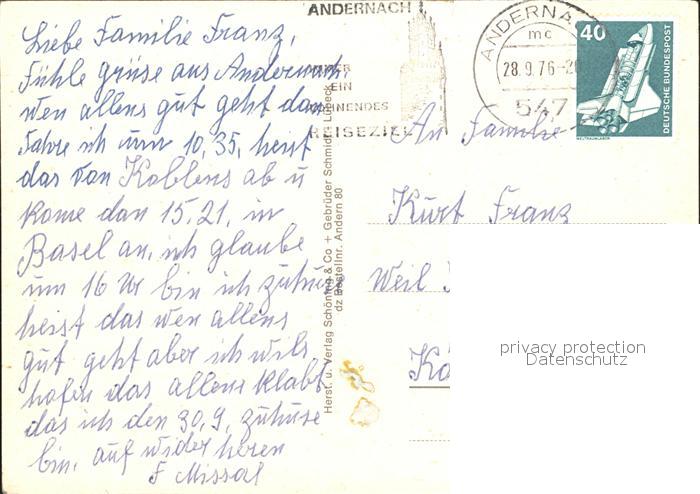 Liebe Familie Franz,
Fühle grüse aus Andernach,
wen allens gut geht dan
Fahre ich um 10,35, heist
das von Koblens ab u
kome dan 15,21, in
Basel an, ich glaube
um 16 Ur bin ich zuhuse
heist das wen allens
gut geht aber ich wils
hofen das allens klabt
das ich den 30,9, zuhuse
bin, auf wider hören
F Missal
ANDERNACH
IMMER
EIN
LOHNENDES
REISEZIEL
ANDERNA
mc
28.9.76-2
547
40
DEUTSCHE BUNDESPOST
WELTRAUMLABOR
An Familie
Kurt Franz
Weil
Herst. u. Verlag Schöning & Co + Gebrüder Schmidt, Lübeck
dz Bestellnr. Andern 80
privacy protection
Datenschutz